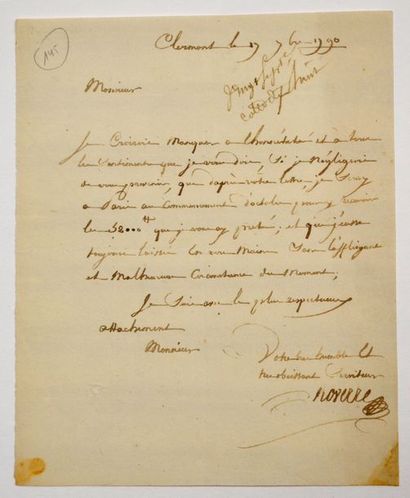 145
Clermont le 17 7bre 1790
Monsieur
Je Croirois Manquer a l'honnêteté et à tous
les Sentiments que je vous dois, Si je Négligeois
de vous prevenir, que d'après votre lettre, je Seray
a Paris au Commencement d'octobre pour y recevoir
les 52000 tt que je vous ay prété; et que j'eusse
toujours laissé en vos Mains Sans l'affligeante
et Malheureuse Circonstance du Moment;
Je Suis avec le plus respectueux
attachement
Monsieur
Votre très humble Et
très obeissant Serviteur